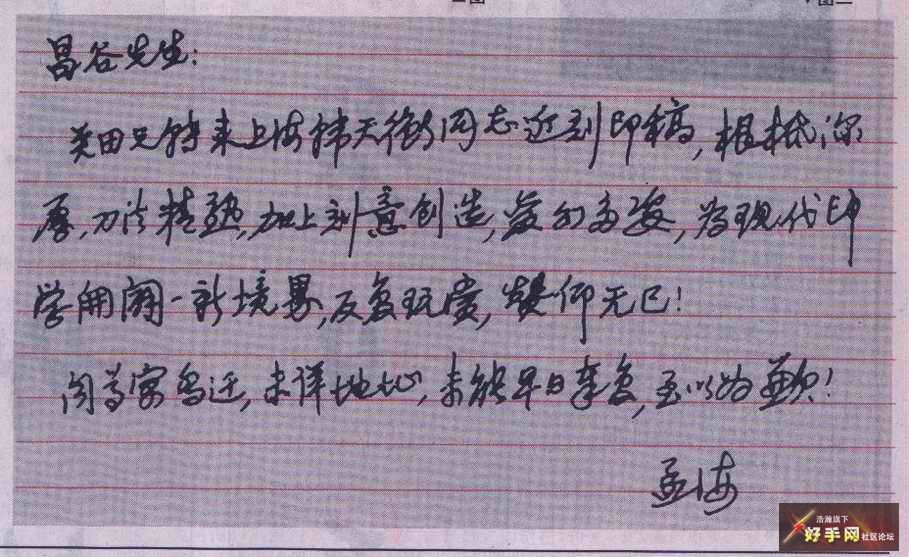 昌谷先生:
关田兄转来上海韩天衡同志近刻印稿,根柢深
厚,刀法精熟,加上刻意创造,变幻多姿,为现代印
学开阔一新境界,反复玩赏,赞仰无已!
闻尊寓乔迁,未详地址,未能早日奉复,至以为歉!
孟海
浩瀚旗下
好手网社区论坛